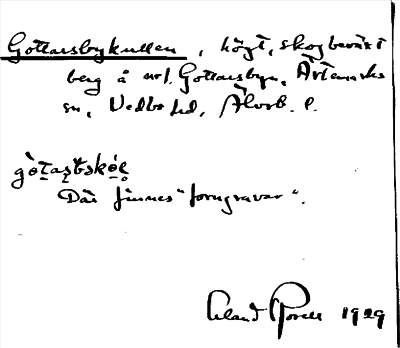 Gottarsbykullen, högt, skogbeväxt
berg å nr 1 Gottarsbyn, Ärtemarks
sn, Vedbo hd, Älvsb. l.
gò̀tas̱bskó̱l̥
Där finnes "forngravar".
Erland Rosell 1929